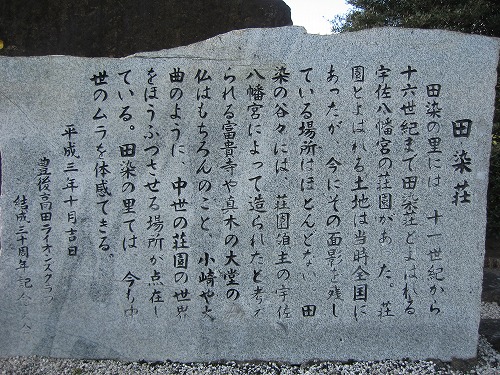 田染荘
田染の里には、十一世紀から
十六世紀まで田染荘とよばれる
宇佐八幡宮の荘園があった。荘
園とよばれる土地は当時全国に
あったが、今にその面影を残し
ている場所はほとんどない。田
染の谷々には、荘園領主の宇佐
八幡宮によって造られたと考え
られる富貴寺や真木の大堂の
仏はもちろんのこと、小崎や大
曲のように、中世の荘園の世界
をほうふつさせる場所が点在し
ている。田染の里では、今も中
世のムラを体感できる。
平成三年十月吉日
豊後高田ライオンズクラブ
結成三十周年記念